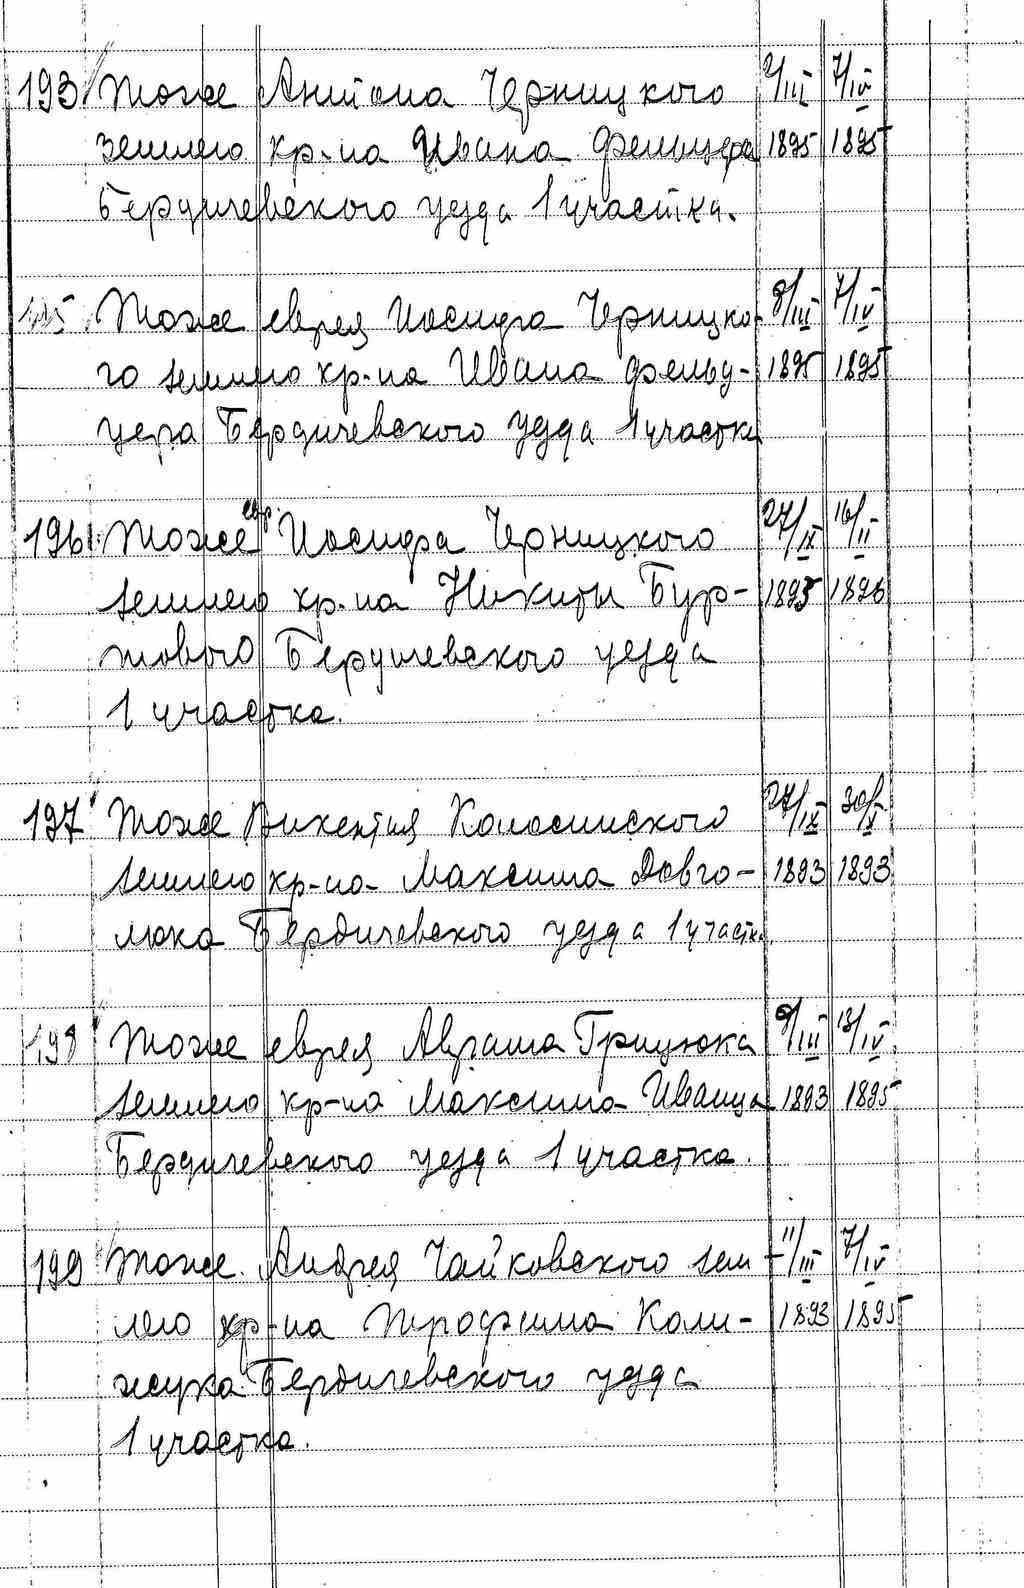 193 Тоже Антона Черницкого 9/III 7/IV
землею кр-на Ивана Фельцера 1895 1895
Бердичевского уезда 1 участка.
195 Тоже еврея Иосифа Черницко- 9/III 7/IV
го землею кр-на Ивана Фельд- 1895 1895
цера Бердичевского уезда 1 участка
196 Тоже евр. Иосифа Черницкого 27/IX 16/II
землею кр-на Никиты Бур- 1895 1896
тового Бердичевского уезда
1 участка.
197 Тоже Викентия Колосинского 27/IX 30/X
землею кр-на Максима Довго- 1893 1893
люка Бердичевского уезда 1 участка.
198 Тоже еврея Аврама Грицюка 9/III 18/IV
землею кр-на Максима Иванца 1893 1895
Бердичевского уезда 1 участка.
199 Тоже Андрея Чайковского зем- 11/III 7/IV
лею кр-на Трофима Кали- 1893 1895
жука Бердичевского уезда
1 участка.